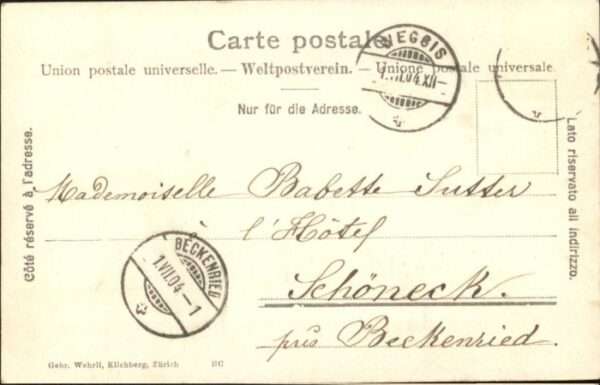 Carte postale
WEGGIS
1.VII.04.XII
Union postale universelle. — Weltpostverein. — Unione postale universale.
Nur für die Adresse.
Côté réservé à l'adresse.
Lato riservato all indirizzo.
Mademoiselle Babette Sutter
à l'Hôtel
BECKENRIED
1.VII.04-1
Schöneck.
près Beckenried.
Gebr. Wehrli, Kilchberg, Zürich